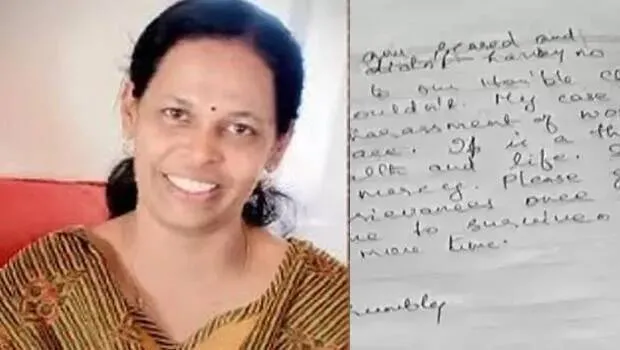 and
having no
to our Hon'ble
couldn't. My case
harassment of wo
ace. It is a th
and life.
mercy. Please
grievances once
me to survive
more time.
Humbly